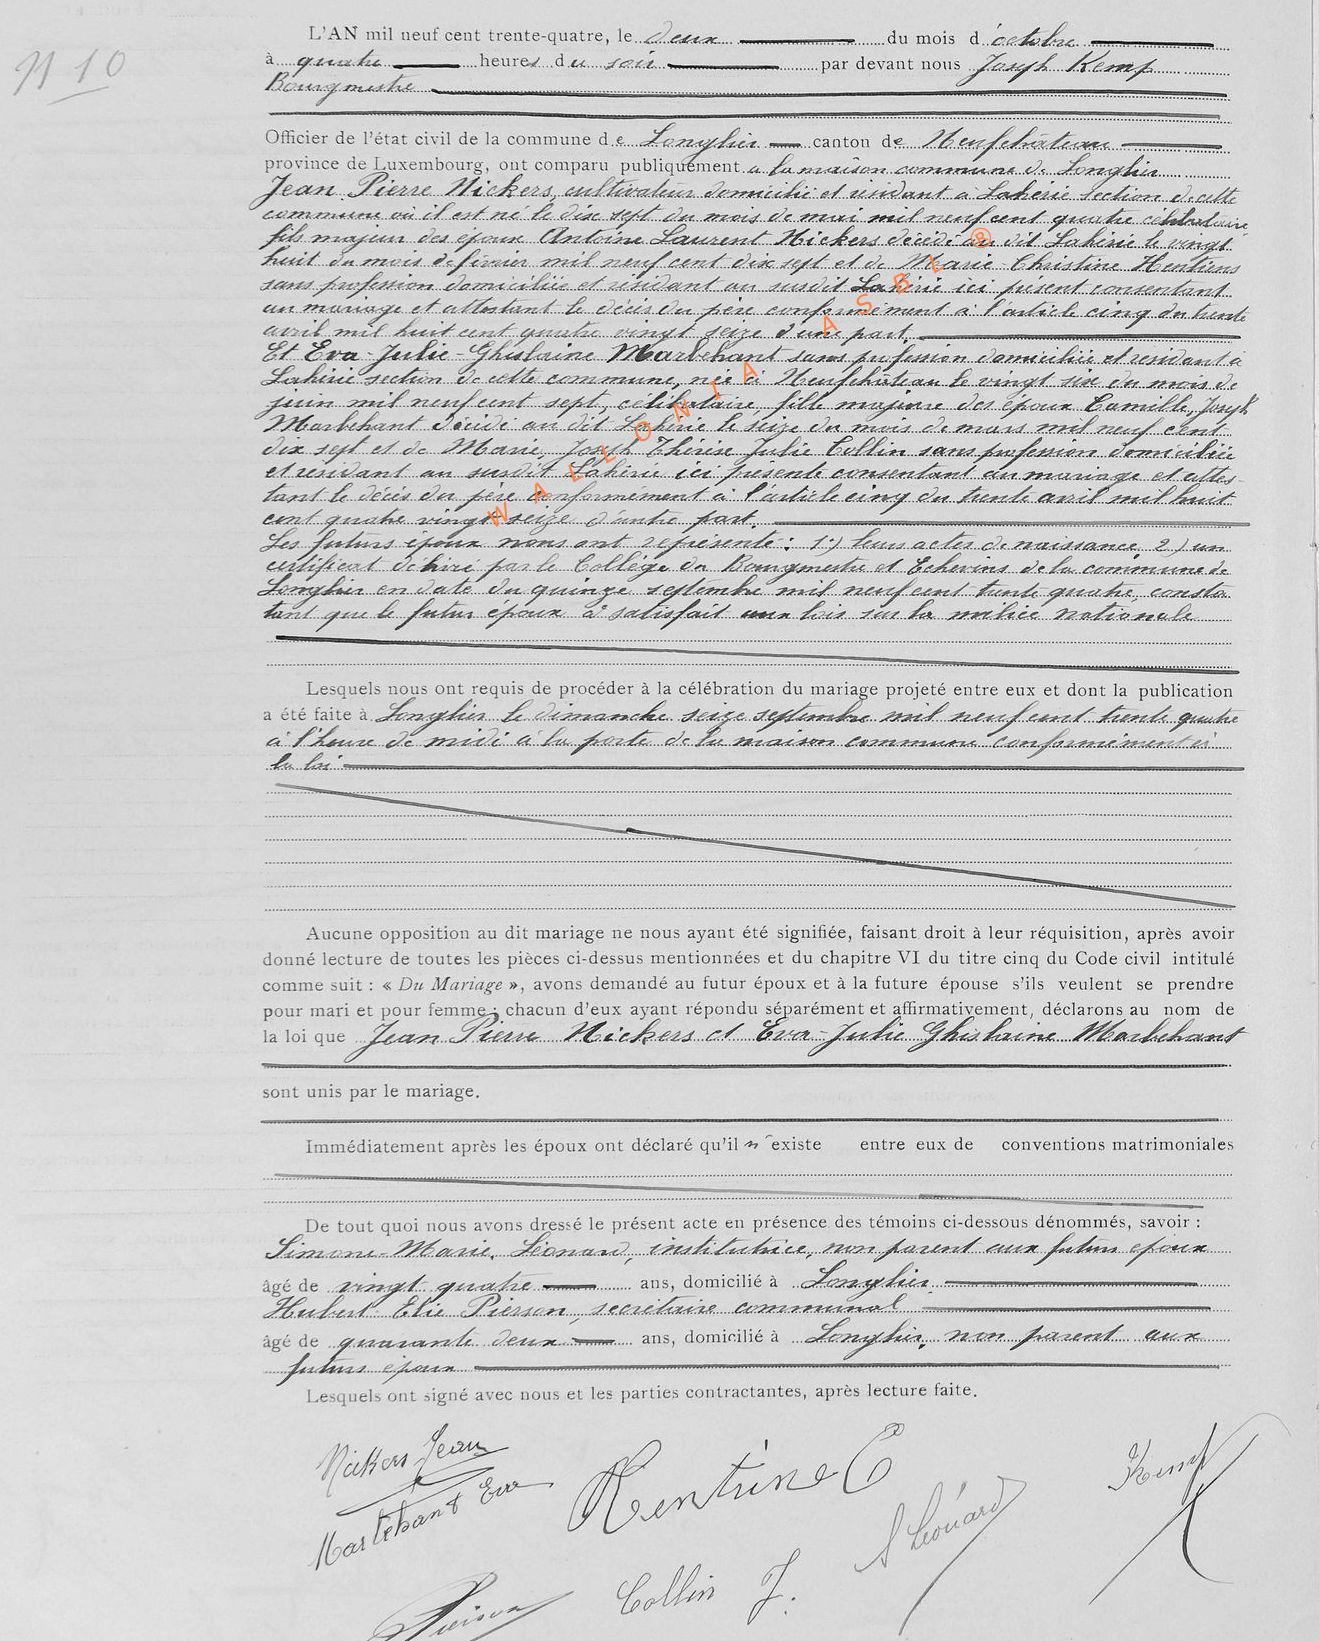 N 10
L'AN mil neuf cent trente-quatre, le deux du mois d'octobre
à quatre heures du soir par devant nous Joseph Kemp
Bourgmestre
Officier de l'état civil de la commune de Longlier canton de Neufchâteau
province de Luxembourg, ont comparu publiquement a la maison commune de Longlier
Jean Pierre Nickers, cultivateur domicilié et résidant à Lahérie section de cette
commune où il est né le dix sept du mois de mai mil neuf cent quatre célibataire,
fils majeur des époux Antoine Laurent Nickers décédé au dit Lahérie le vingt
huit du mois de février mil neuf cent dix sept et de Marie-Christine Hentiens
sans profession domiciliée et résidant au susdit Lahérie ici présent consentant
au mariage et attestant le décès du père conformément à l'article cinq du trente
avril mil huit cent quatre vingt seize d'une part.
Et Eva-Julie-Ghislaine Marbehant sans profession domiciliée et résidant à
Lahérie section de cette commune, née à Neufchâteau le vingt six du mois de
juin mil neuf cent sept, célibataire, fille majeure des époux Camille, Joseph
Marbehant décédé au dit Lahérie le seize du mois de mars mil neuf cent
dix sept et de Marie, Joseph Thérèse Julie Collin sans profession domiciliée
et résidant au susdit Lahérie ici présente consentant au mariage et attes-
tant le décès du père conformément à l'article cinq du trente avril mil huit
cent quatre vingt seize d'autre part.
Les futurs époux nous ont représenté : 1°) leurs actes de naissance, 2°) un
certificat délivré par le Collège du Bourgmestre et Echevins de la commune de
Longlier en date du quinze septembre mil neuf cent trente quatre, consta-
tant que le futur époux a satisfait aux lois sur la milice nationale
Lesquels nous ont requis de procéder à la célébration du mariage projeté entre eux et dont la publication
a été faite à Longlier le dimanche seize septembre mil neuf cent trente quatre
à l'heure de midi à la porte de la maison commune conformément à
la loi
Aucune opposition au dit mariage ne nous ayant été signifiée, faisant droit à leur réquisition, après avoir
donné lecture de toutes les pièces ci-dessus mentionnées et du chapitre VI du titre cinq du Code civil intitulé
comme suit : « Du Mariage », avons demandé au futur époux et à la future épouse s'ils veulent se prendre
pour mari et pour femme ; chacun d'eux ayant répondu séparément et affirmativement, déclarons au nom de
la loi que Jean Pierre Nickers et Eva-Julie Ghislaine Marbehant
sont unis par le mariage.
Immédiatement après les époux ont déclaré qu'il n'existe entre eux de conventions matrimoniales
De tout quoi nous avons dressé le présent acte en présence des témoins ci-dessous dénommés, savoir :
Simone-Marie, Léonard, institutrice, non parent aux futurs époux
âgé de vingt quatre ans, domicilié à Longlier
Hubert Elie Pierson, secrétaire communal
âgé de quarante deux ans, domicilié à Longlier, non parent aux
futurs époux
Lesquels ont signé avec nous et les parties contractantes, après lecture faite.
Nickers Jean
Marbehant Eva
Hentiens C
S Léonard
Kemp
Pierson
Collin J.
WALLONIA ASBL ®